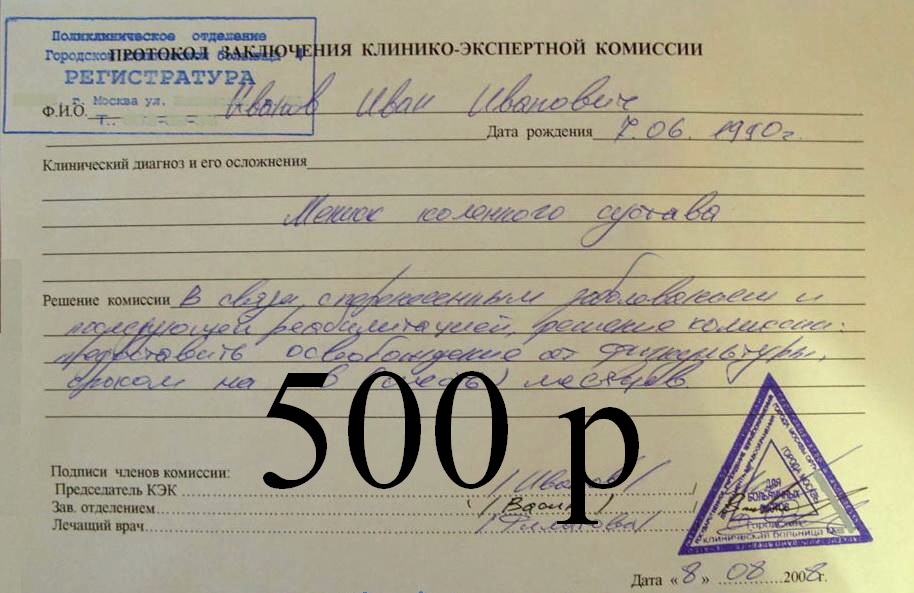 Поликлиническое отделение
Городской клинической больницы
РЕГИСТРАТУРА
г. Москва ул.
Т.
ПРОТОКОЛ ЗАКЛЮЧЕНИЯ КЛИНИКО-ЭКСПЕРТНОЙ КОМИССИИ
Ф.И.О. Иванов Иван Иванович
Дата рождения 7.06. 1990г.
Клинический диагноз и его осложнения
Мениск коленного сустава
Решение комиссии В связи с перенесенным заболеванием и
последующей реабилитацией, решение комиссии:
предоставить освобождение от физкультуры,
сроком на 6 (шесть) месяцев.
500 р
Подписи членов комиссии:
Председатель КЭК /Иванов/
Зав. отделением
Лечащий врач /Филатова/
ДЛЯ
БОЛЬНИЧНЫХ
ЛИСТОВ
ГОРОДА МОСКВЫ
Городская
клиническая больница
Дата «8» 08 2008г.